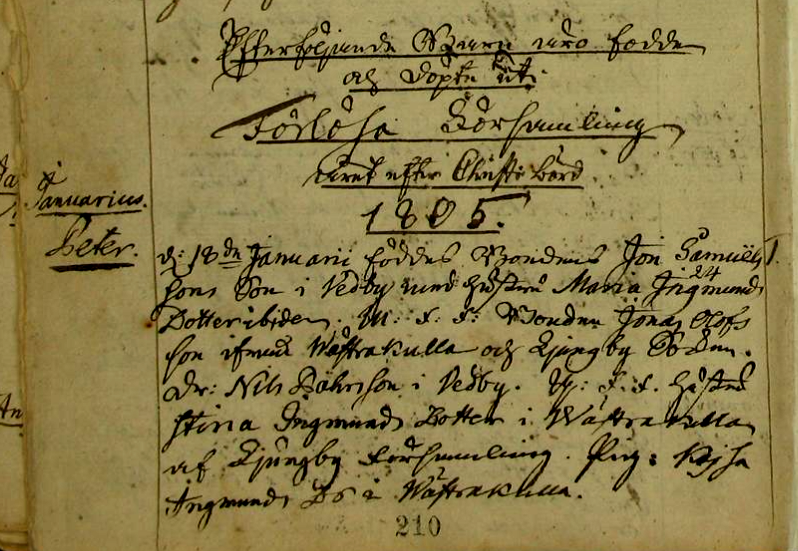 Efterföljande Barn äro födde
och döpte uti
Förlösa Församling
året efter Christi Börd
1805.
Januarius.
Peter.
d: 18de Januarii föddes Bonden Jon Samuels
sons Son i Vedby med hustru Maria Ingmunds 24
Dotter ibidem. M: f. f: Bonden Jonas Olofs
son ifrån Wästrakulla och Ljungby Sockn.
Dr: Nils i Vedby. Q: f. f. hustru
Stina Ingmunds Dotter i Wästrakulla
af Ljungby Församling. Pig: Kajsa
Ingmunds Dr i Wästrakulla.
210